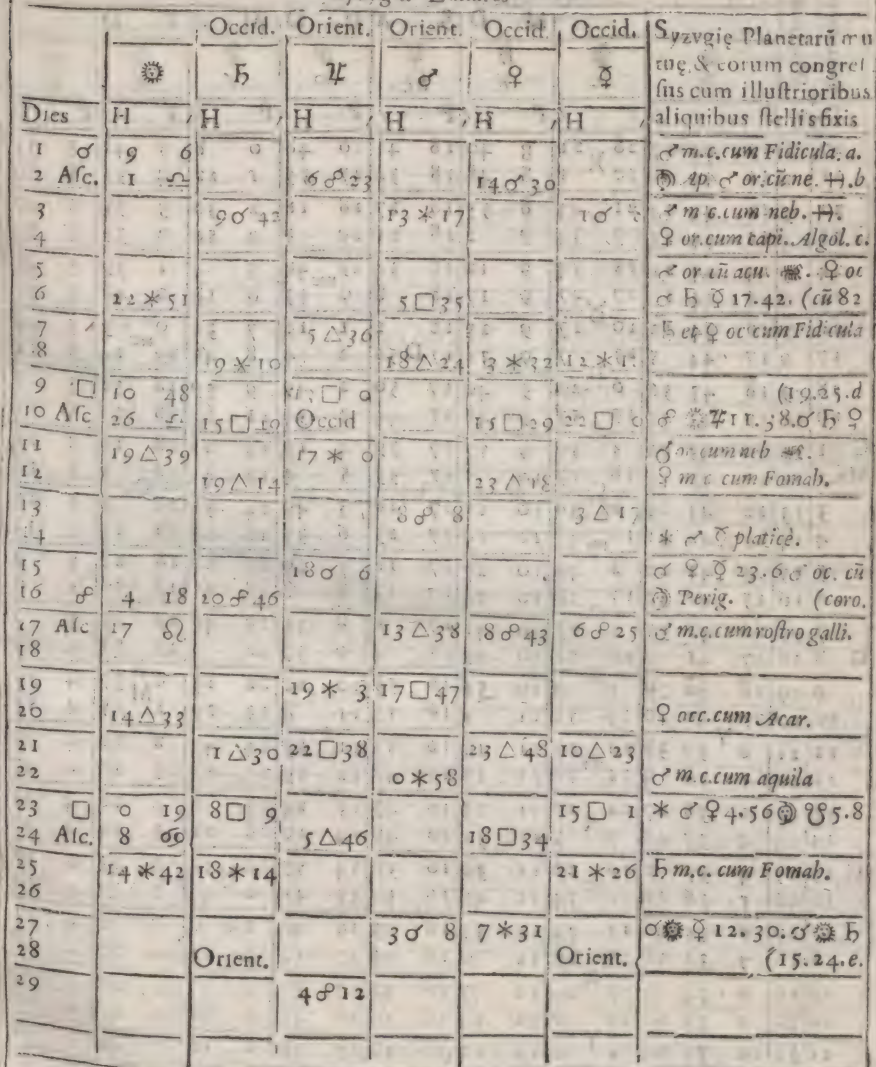 Occid. Orient. Orient. Occid. Occid. Syzygię Planetarū mu
☉ ♄ ♃ ♂ ♀ ☿ tuę, & eorum congreſ
ſus cum illuſtrioribus
Dies H H H H H H aliquibus ſtellis fixis
1 ☌ 9 6 ♂ m.c.cum Fidicula. a.
2 Aſc. 1 ♎ 6 ☍ 23 14 ☌ 30 Ap. ♂ or.cū ne. b
3 9 ☌ 42 13 ✶ 17 1 ☌ ♂ m c.cum neb.
4 ♀ or.cum capi. Algol. c.
5 ♂ or cū acu. ♀ oc
6 22 ✶ 51 5 □ 35 ☌ ♄ ☿ 17.42. (cū 82
7 15 △ 36 ♄ et ♀ oc cum Fidicula
8 9 ✶ 10 18 △ 24 3 ✶ 32 12 ✶
9 □ 10 48 □ 0 (19.25.d
10 Aſc 26 ♎ 15 □ 19 Occid 15 □ 29 22 □ 0 ☍ ☉ ♃ 11.38.☌ ♄ ♀
11 19 △ 39 17 ✶ 0 ♂ cum neb
12 19 △ 14 23 △ 18 ♀ m c cum Fomah.
13 8 ☍ 8 3 △ 17
14 ✶ ♂ ☿ platicè.
15 18 ☌ 6 ☌ ♀ ☿ 23.6 ♂ oc. cū
16 ☍ 4 18 20 ☍ 46 Perig. (coro.
17 Aſc 17 ♌ 13 △ 38 8 ☍ 43 6 ☍ 25 ♂ m.c.cum roſtro galli.
18
19 19 ✶ 3 17 □ 47
20 14 △ 33 ♀ occ.cum Acar.
21 1 △ 30 22 □ 38 23 △ 48 10 △ 23
22 0 ✶ 58 ♂ m.c.cum aquila
23 □ 0 19 8 □ 9 15 □ 1 ✶ ♂ ♀ 4.56 ☋ 5.8
24 Aſc. 8 ♋ 5 △ 46 18 □ 34
25 14 ✶ 42 18 ✶ 14 21 ✶ 26 ♄ m.c. cum Fomah.
26
27 3 ☌ 8 7 ✶ 31 ☌ ☉ ☿ 12.30.☌ ☉ ♄
28 Orient. Orient. (15.24.e.
29 4 ☍ 12